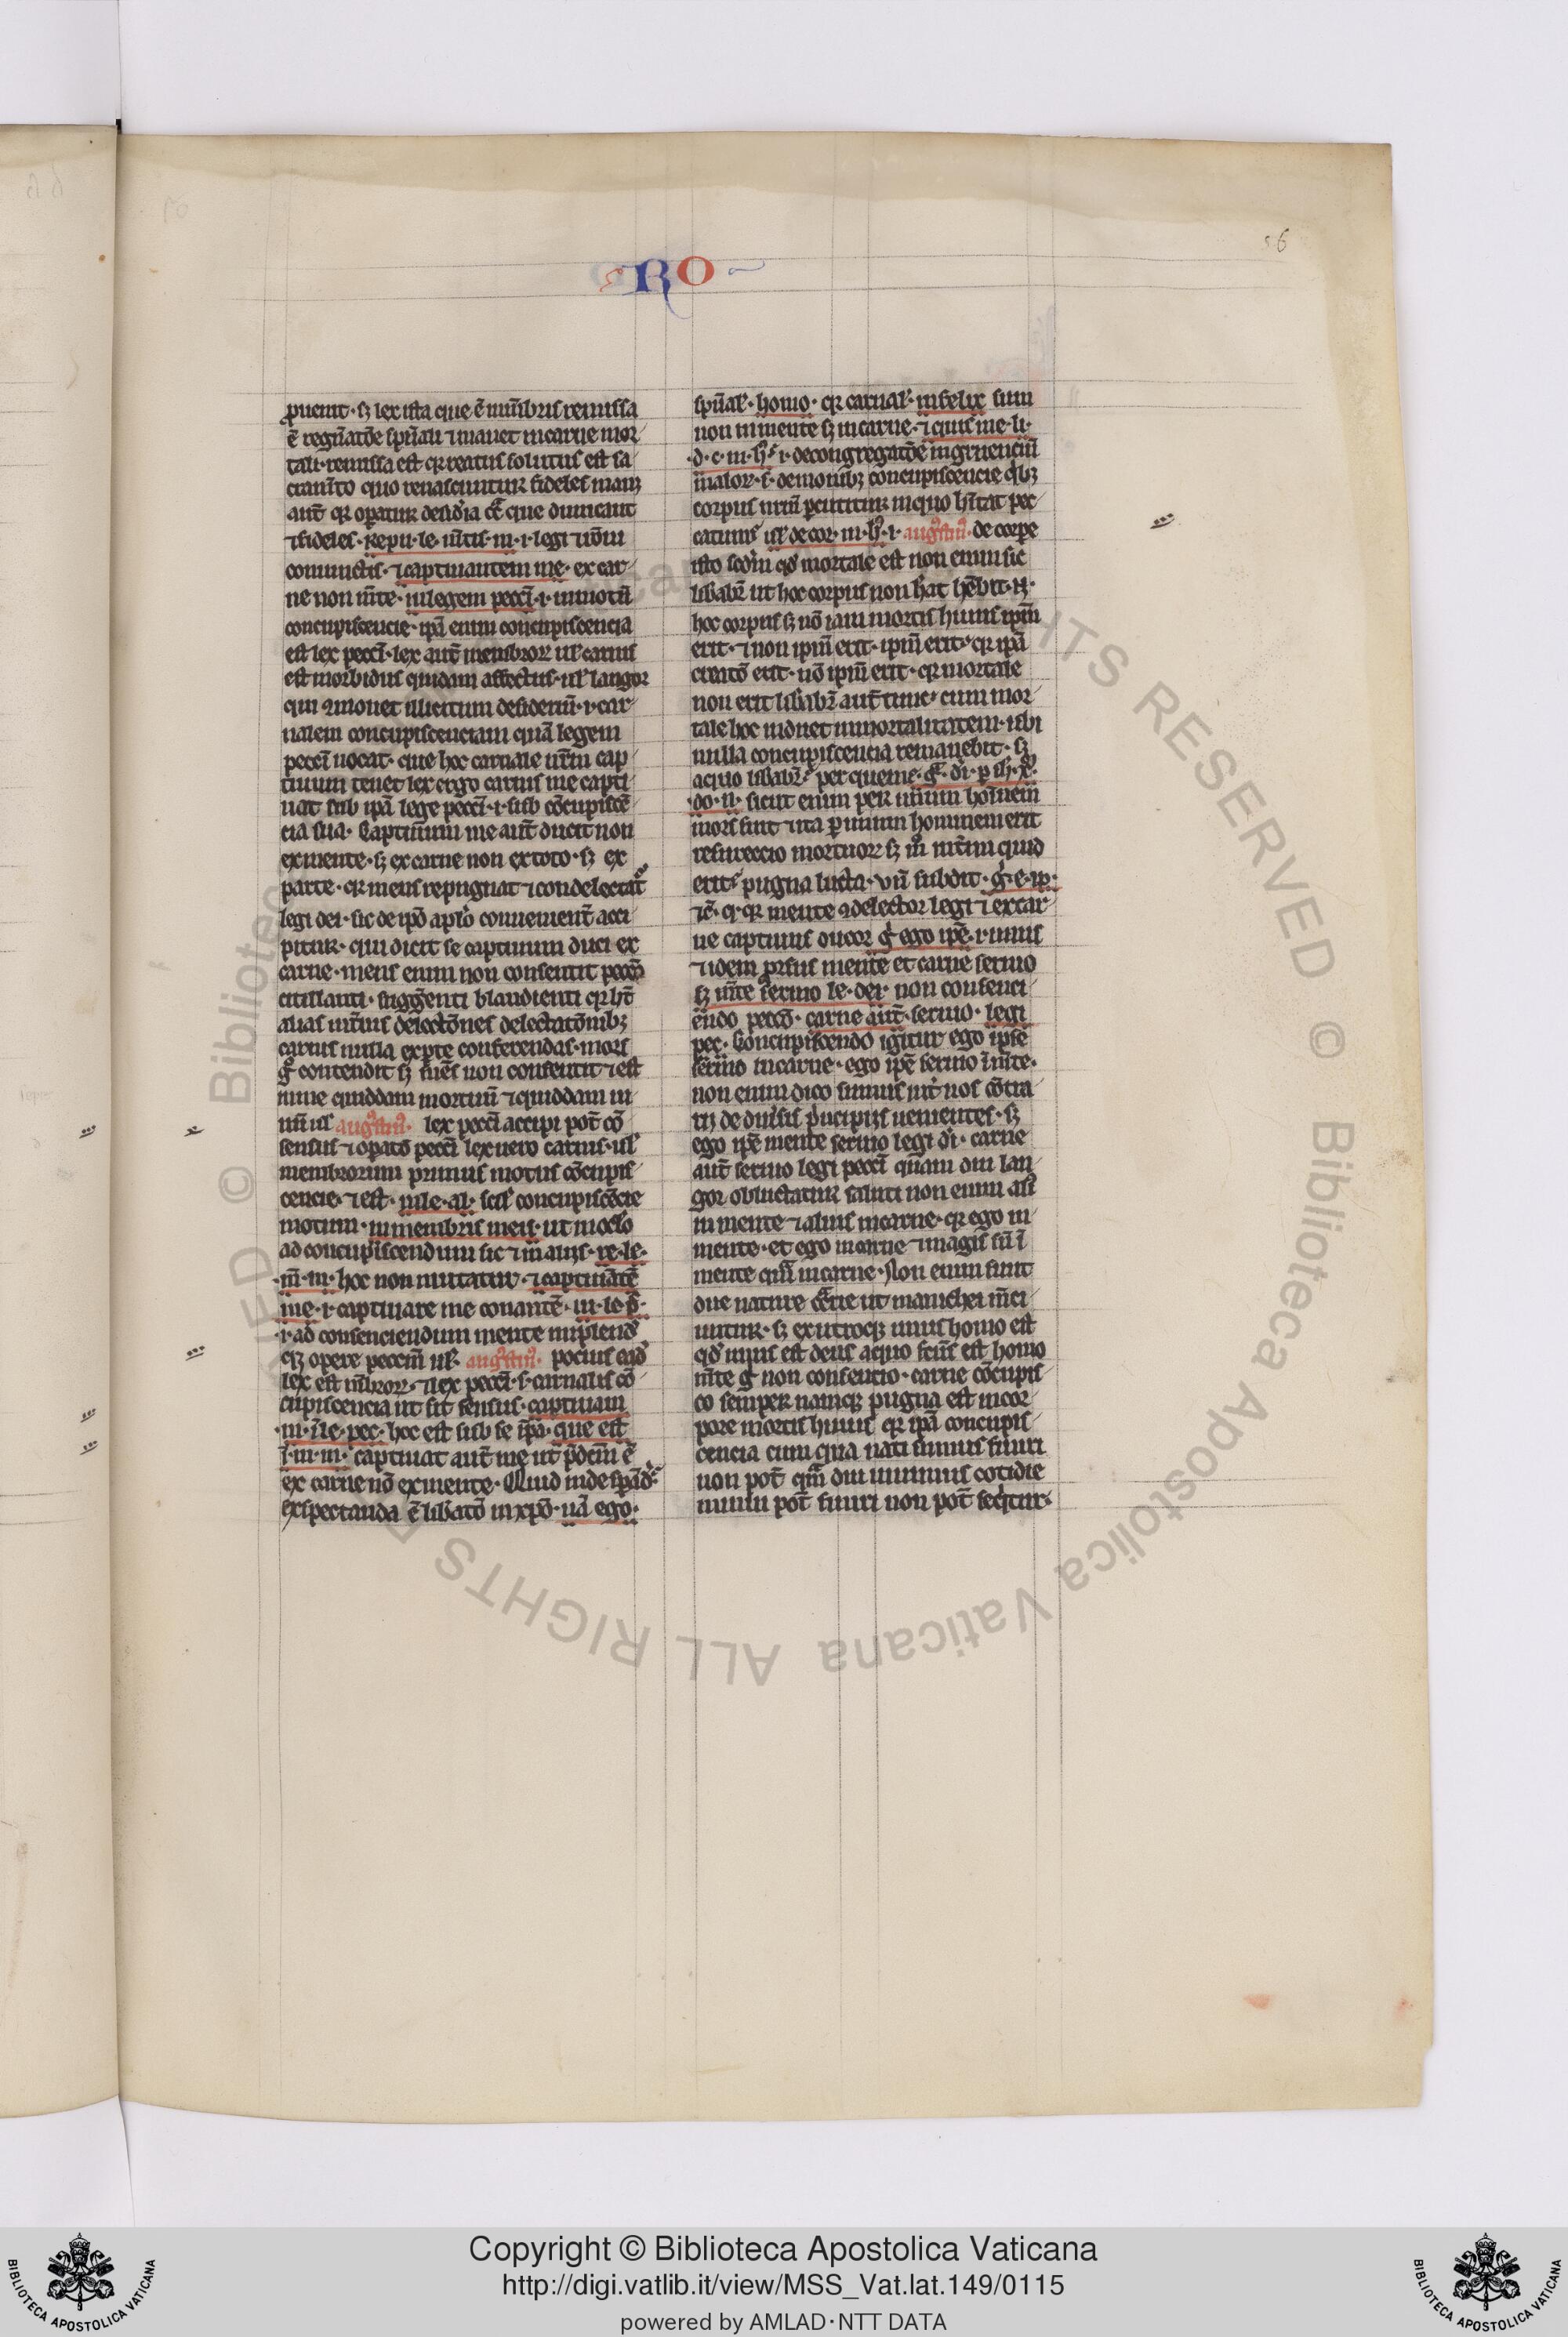 56
RO
ꝓuenit · sꝫ lex ista que ē mēbris remissa
ē regn̄atōe spūali ⁊ manet in carne mor
tali · remissa est qr reatus solutus est sa
cram̄to quo renascuntur fideles manꝫ
aut̄ qr opatur desid'ia cōtra que dimicant
⁊ fideles · Repu · le · m̄tis · m · i · legi ⁊ uōm
coniunctis · ⁊ captiuantem me · ex car
ne non m̄te · in legem peccī · i · in motū
concupiscencie · ipā enim concupiscencia
est lex peccī · lex aut̄ membroꝝ ul' carnis
est morbidus quidam affectus · ul' langor
qui ꝯmouet illicitum desideriū · i · car
nalem concupiscenciam quā legem
peccī uocat · que hoc carnale ur̄m cap
tiuum tenet lex ergo carnis me capti
uat sub ipā lege peccī · i · sub cōcupiscē
cia sua · Captiuum me aut̄ ducit non
ex mente · sꝫ ex carne non ex toto · sꝫ ex
parte · qr mens repugnat ⁊ condelectat̄
legi dei · sic de ipō aplō conuenient̄ acci
pitur · qui dicit se captiuum duci ex
carne · mens enim non consentit peccō
titillanti · suggerenti blandienti qr ht̄
alias int̄ius delectōnes delectatōnibꝫ
carnis nulla ex pte conferendas · mors
g contendit sꝫ mēs non consentit ⁊ est
nunc quiddam mortuū ⁊ quiddam ui
uū ul' augꝰstinꝰ · lex peccī accipi pot̄ cō
sensus ⁊ opatō peccī lex uero carnis · ul'
membrorum primus motus cōcupis
cencie · ⁊ est · in le · al · scil' concupiscēcie
motum · in membris meis · ut in oclo
ad concupiscendum sic ⁊ in aliis · re · le ·
m̄ · m · hoc non mutatur · ⁊ captiuātē
me · i · captiuare me conantē · in · le · p ·
· i · ad consenciendum mente implend'
qꝫ opere peccm̄ ul' · augꝰstinꝰ · pocius ead'
lex est mēbroꝝ · ⁊ lex peccī · s · carnalis cō
cupiscencia ut sit sensus · captiuam
· m · i le · pec · hoc est sub se ipā · que est
i · m · m · captiuat aut̄ me ut p̄dcm̄ ē
ex carne nō ex mente · Quid inde spād'
exspectanda ē libatō in xpō · nā ego ·
spūal' · homo · qr carnal' · infelix sum
non in mente sꝫ in carne · ⁊ quis me · li ·
· d · c · m · hꝰ · i · de congregatōe ingruenciū
maloꝝ · s · demonibꝫ concupiscencie qbꝫ
corpus nr̄m pcutitur in quo hītat pec
catum ul' de cor · m · hꝰ · i · augꝰstinꝰ · de corpe
isto scdm qd mortale est non enim sic
libabr̄ ut hoc corpus non hat hēbit · n̄ ·
hoc corpus sꝫ nō iam mortis huius ipm̄
erit · ⁊ non ipm̄ erit · ipm̄ erit · qr ipā
creatō erit · nō ipm̄ erit · qr mortale
non erit libabr̄ aut̄ tunc · cum mor
tale hoc induet immortalitatem · ubi
nulla concupiscencia remanebit · sꝫ
a quo libabr̄ · per quem · g · di · p ih · x ·
· do · n · sicut enim per unum hoīnem
mors fuit ⁊ ita p unum hominem erit
resureccio mortuoꝝ sꝫ in int̄im quid
erit pugna lucta · un̄ subdit · g · e · ip ·
⁊c̄ · q · qr mente ꝯdelector legi ⁊ ex car
ne captiuus ducor g ego ipē · i · unus
⁊ idem prsus mente et carne seruio
sꝫ m̄te seruio le · dei · non consenci
endo peccō · carne aut̄ · seruio · legi
pec · Concupiscendo igitur ego ipse
seruio in carne · ego ipē seruio i m̄te ·
non enim dico sumus int̄ nos cōtra
rij de diuisis p̄ncipiis uenientes · sꝫ
ego ipē mente seruio legi di · carne
aut̄ seruio legi peccī quam diu lan
gor obluctatur saluti non enim ali'
in mente ⁊ alius in carne · qr ego in
mente · et ego in carne ⁊ magis sū i
mente qm̄ in carne · Non enim sunt
due nature cōtrie ut manichei m̄ci
untur · sꝫ ex utroqꝫ unus homo est
qd unus est deus a quo fcūs est homo
m̄te g non consencio · carne cōcupis
co semper namqꝫ pugna est in cor
pore mortis huius qr ipā concupis
cencia cum qua nati sumus finiri
non pot̄ qm̄ diu uiuimus cotidie
minui pot̄ finiri non pot̄ seqitur ·
Copyright © Biblioteca Apostolica Vaticana
http://digi.vatlib.it/view/MSS_Vat.lat.149/0115
powered by AMLAD·NTT DATA
BIBLIOTECA APOSTOLICA VATICANA
BIBLIOTECA APOSTOLICA VATICANA